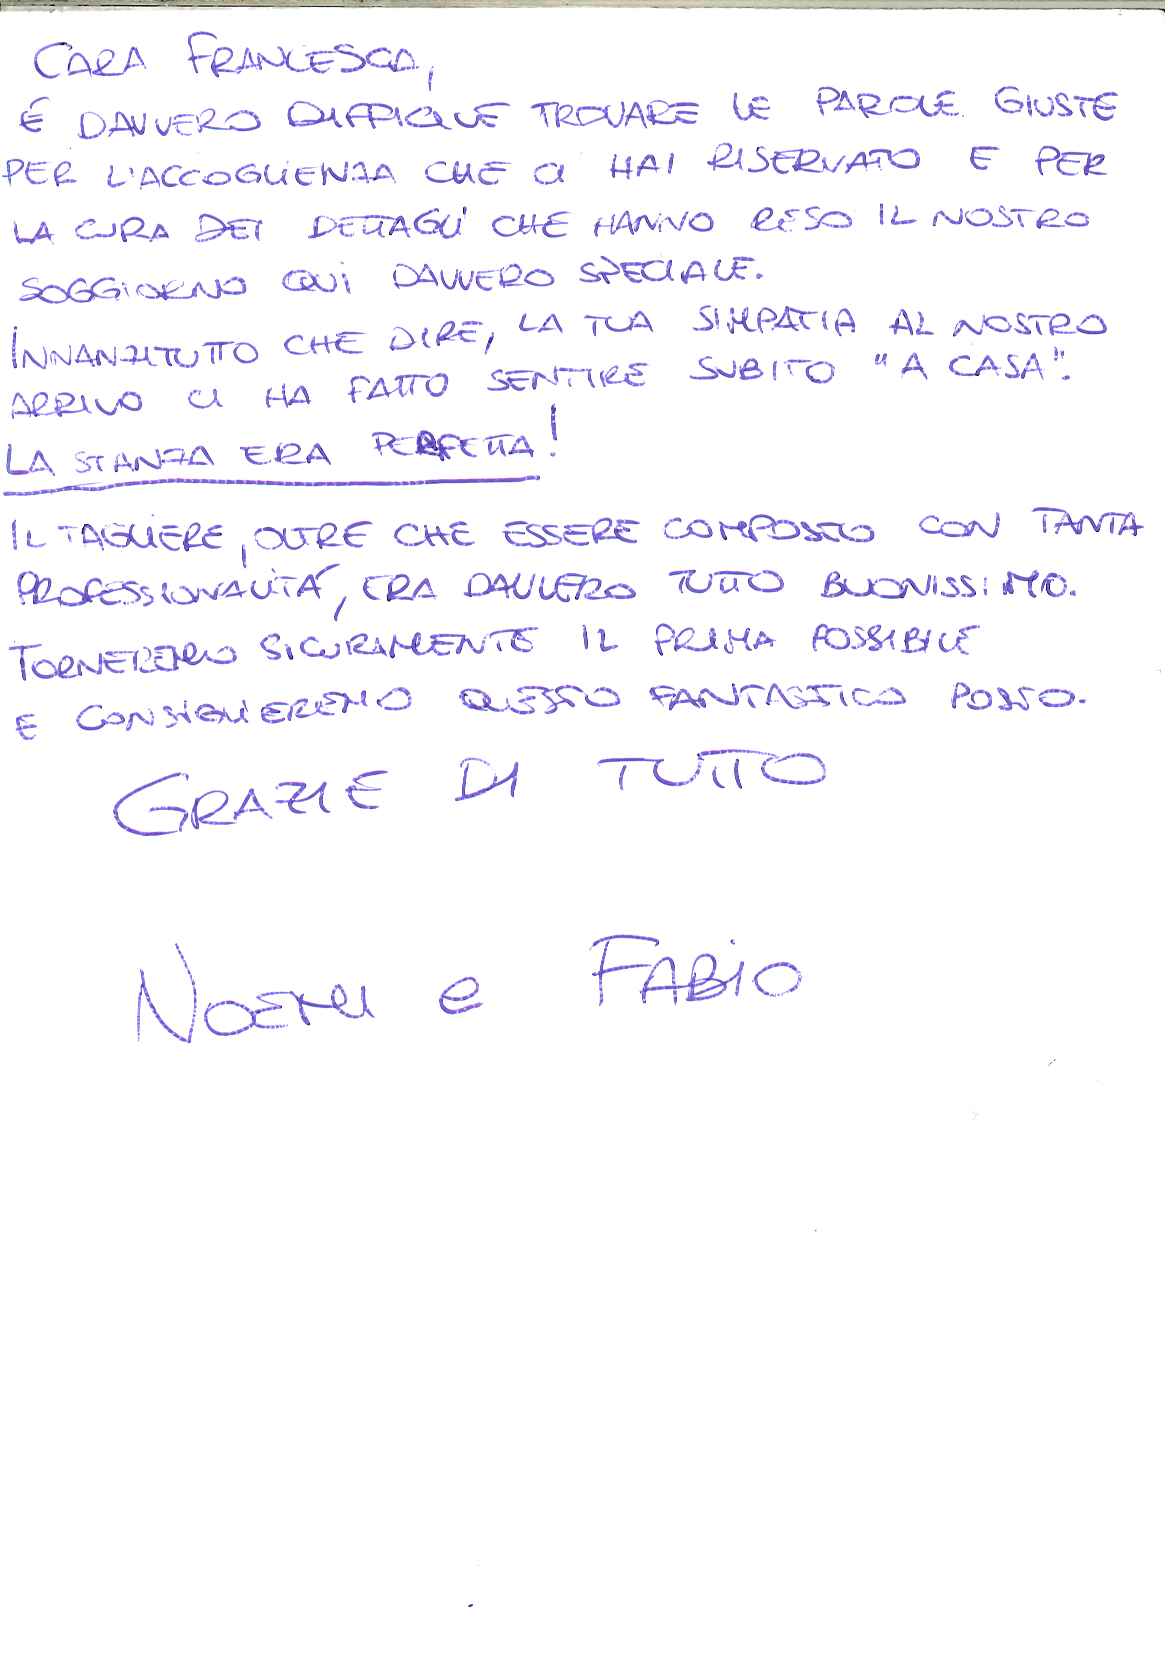 CARA FRANCESCA,
É DAVVERO DIFFICILE TROVARE LE PAROLE GIUSTE
PER L'ACCOGLIENZA CHE CI HAI RISERVATO E PER
LA CURA DEI DETTAGLI CHE HANNO RESO IL NOSTRO
SOGGIORNO QUI DAVVERO SPECIALE.
INNANZITUTTO CHE DIRE, LA TUA SIMPATIA AL NOSTRO
ARRIVO CI HA FATTO SENTIRE SUBITO "A CASA".
LA STANZA ERA PERFETTA!
IL TAGLIERE, OLTRE CHE ESSERE COMPOSTO CON TANTA
PROFESSIONALITÁ, ERA DAVVERO TUTTO BUONISSIMO.
TORNEREMO SICURAMENTE IL PRIMA POSSIBILE
E CONSIGLIEREMO QUESTO FANTASTICO POSTO.
GRAZIE DI TUTTO
NOEMI e FABIO